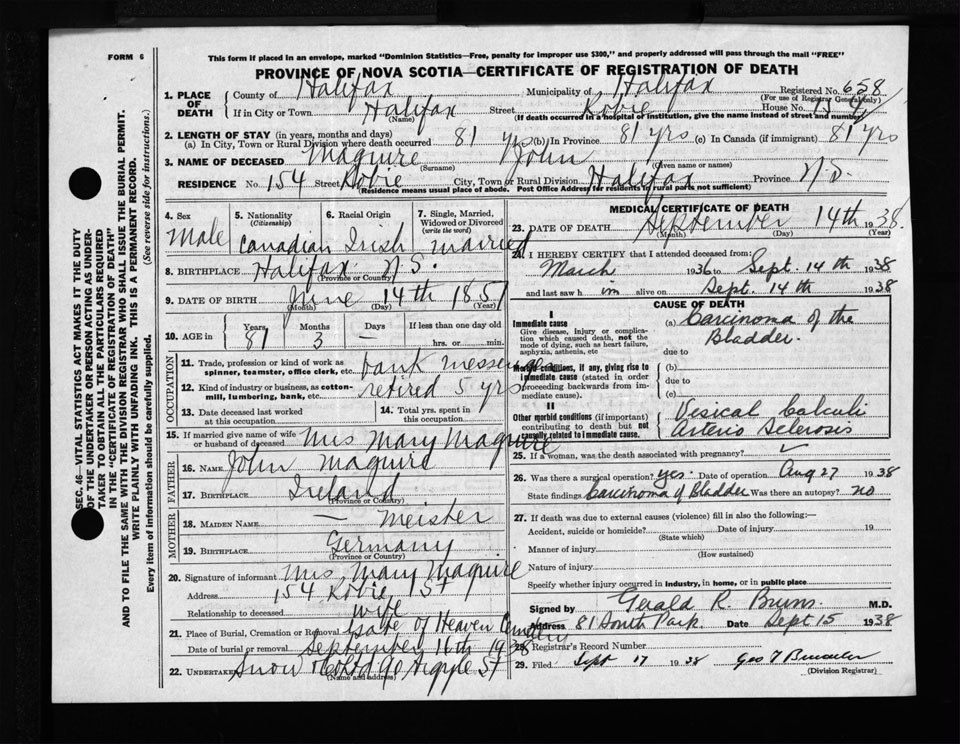 FORM 6
This form if placed in an envelope, marked "Dominion Statistics—Free, penalty for improper use $300," and properly addressed will pass through the mail "FREE"
PROVINCE OF NOVA SCOTIA—CERTIFICATE OF REGISTRATION OF DEATH
SEC. 46—VITAL STATISTICS ACT MAKES IT THE DUTY
OF THE UNDERTAKER OR PERSON ACTING AS UNDER-
TAKER TO OBTAIN ALL THE PARTICULARS REQUIRED
IN THE "CERTIFICATE OF REGISTRATION OF DEATH"
AND TO FILE THE SAME WITH THE DIVISION REGISTRAR WHO SHALL ISSUE THE BURIAL PERMIT.
WRITE PLAINLY WITH UNFADING INK. THIS IS A PERMANENT RECORD.
Every item of information should be carefully supplied. (See reverse side for instructions.)
1. PLACE OF DEATH
County of Halifax Municipality of Halifax Registered No. 658
(For use of Registrar General only)
If in City or Town Halifax Street Robie House No. 154
(Name) (If death occurred in a hospital or institution, give the name instead of street and number)
2. LENGTH OF STAY (in years, months and days)
(a) In City, Town or Rural Division where death occurred 81 yrs (b) In Province 81 yrs (c) In Canada (if immigrant) 81 yrs
3. NAME OF DECEASED Maguire John
(Surname) (Given name or names)
RESIDENCE No. 154 Street Robie City, Town or Rural Division Halifax Province N.S.
(Residence means usual place of abode. Post Office Address for residents in rural parts not sufficient)
4. Sex 5. Nationality (Citizenship) 6. Racial Origin 7. Single, Married, Widowed or Divorced (write the word)
Male Canadian Irish married
8. BIRTHPLACE Halifax N.S.
(Province or Country)
9. DATE OF BIRTH June 14th 1857
(Month) (Day) (Year)
10. AGE in Years Months Days If less than one day old
81 3 — hrs. or min.
OCCUPATION
11. Trade, profession or kind of work as spinner, teamster, office clerk, etc. bank messenger
12. Kind of industry or business, as cotton-mill, lumbering, bank, etc. retired 5 yrs
13. Date deceased last worked at this occupation
14. Total yrs. spent in this occupation
15. If married give name of wife or husband of deceased Mrs Mary Maguire
FATHER
16. NAME John Maguire
17. BIRTHPLACE Ireland
(Province or Country)
MOTHER
18. MAIDEN NAME — Meister
19. BIRTHPLACE Germany
(Province or Country)
20. Signature of informant Mrs Mary Maguire
Address 154 Robie St
Relationship to deceased wife
21. Place of Burial, Cremation or Removal Gate of Heaven Cemetery
Date of burial or removal September 16th 1938
22. UNDERTAKER Snow & Co Ltd 90 Argyle St
(Name and address)
MEDICAL CERTIFICATE OF DEATH
23. DATE OF DEATH September 14th 1938
(Month) (Day) (Year)
24. I HEREBY CERTIFY that I attended deceased from:
March 1936 to Sept. 14th 1938
and last saw him alive on Sept. 14th 1938
CAUSE OF DEATH
I
Immediate cause
Give disease, injury or complication which caused death, not the mode of dying, such as heart failure, asphyxia, asthenia, etc
(a) Carcinoma of the Bladder.
due to
Morbid conditions, if any, giving rise to immediate cause (stated in order proceeding backwards from immediate cause).
(b)
due to
(c)
II
Other morbid conditions (if important) contributing to death but not causally related to immediate cause.
Vesical Calculi
Arterio Sclerosis
25. If a woman, was the death associated with pregnancy?
26. Was there a surgical operation? yes. Date of operation Aug 27 1938
State findings Carcinoma of Bladder Was there an autopsy? no
27. If death was due to external causes (violence) fill in also the following:—
Accident, suicide or homicide? Date of injury 19
(State which)
Manner of injury
(How sustained)
Nature of injury
Specify whether injury occurred in industry, in home, or in public place
Signed by Gerald R. Burns M.D.
Address 81 South Park. Date Sept 15 1938
28. Registrar's Record Number
29. Filed Sept 17 1938 Geo
(Division Registrar)